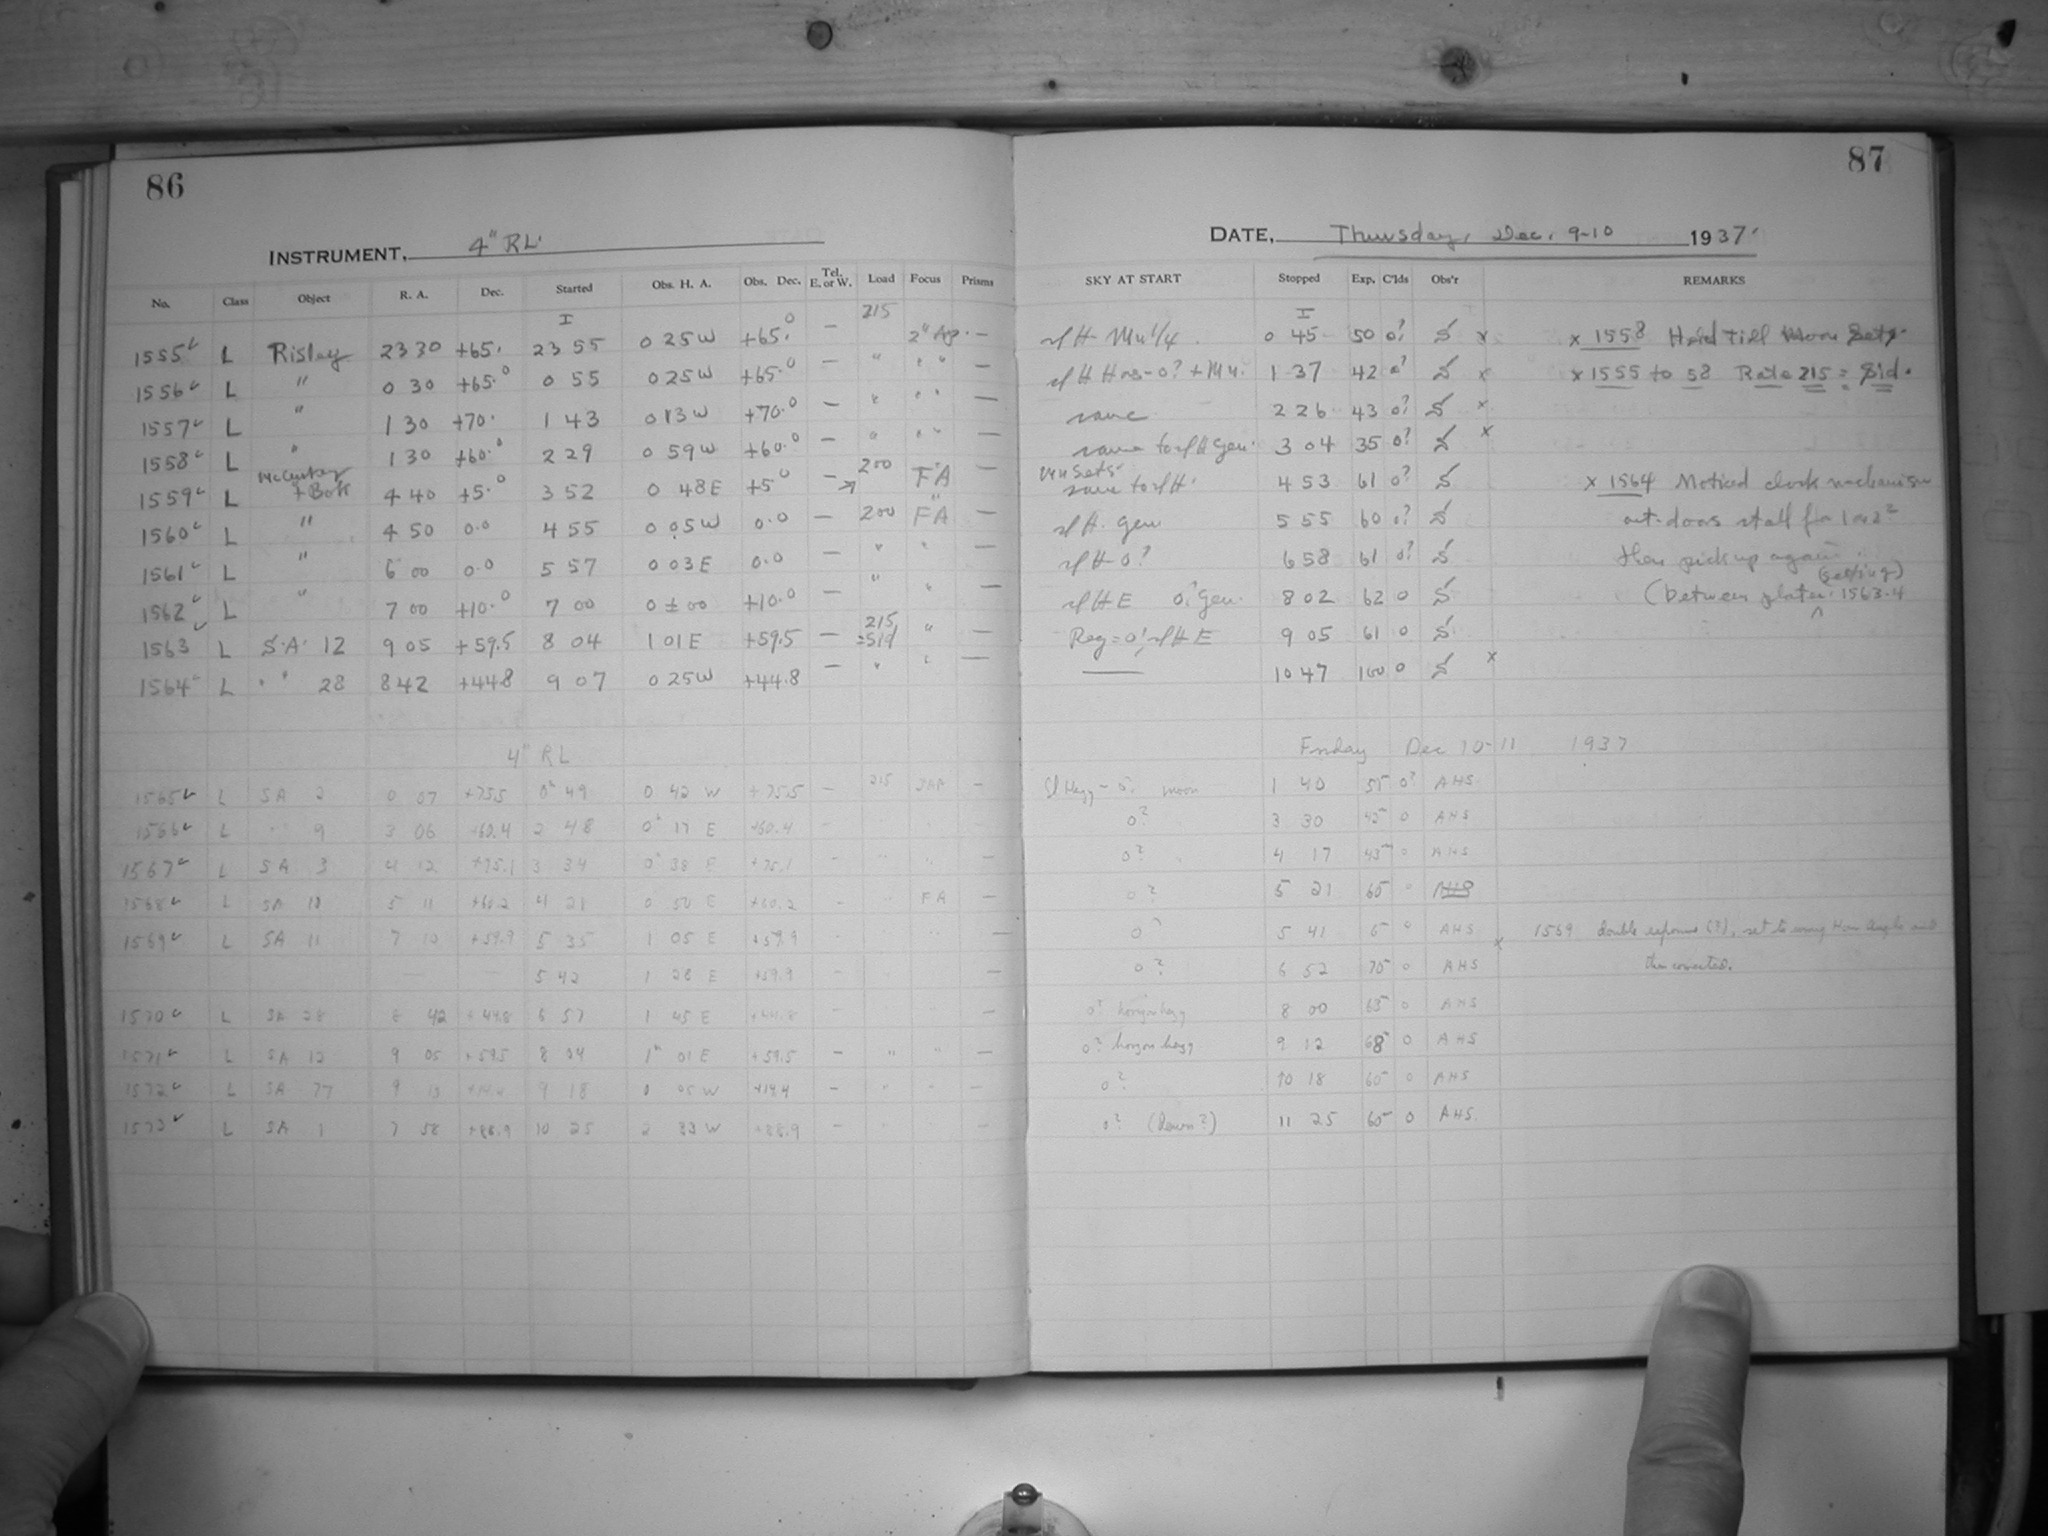 86
INSTRUMENT, 4" RL.
No. Class Object R. A. Dec. Started Obs. H. A. Obs. Dec. Tel. E. or W. Load Focus Prisms
I 215
1555 L Risley 23 30 +65.0 23 55 0 25 W +65.0 — 2" Ap. —
1556 L " 0 30 +65.0 0 55 0 25 W +65.0 — " " " —
1557 L " 1 30 +70. 1 43 0 13 W +70.0 — " " " —
1558 L " 1 30 +60.0 2 29 0 59 W +60.0 — " " " —
1559 L + Bok 4 40 +5.0 3 52 0 48 E +5.0 — 200 FA —
1560 L " 4 50 0.0 4 55 0 05 W 0.0 — 200 FA —
1561 L " 6 00 0.0 5 57 0 03 E 0.0 — " " —
1562 L " 7 00 +10.0 7 00 0 ± 00 +10.0 — " " —
1563 L S.A. 12 9 05 +59.5 8 04 1 01 E +59.5 — 215 " —
1564 L " " 28 8 42 +44.8 9 07 0 25 W +44.8 — " " —
4" RL
1565 L SA 2 0 07 +75.5 0 49 0 42 W +75.5 — 215 —
1566 L " 9 3 06 +60.4 2 48 0 17 E +60.4 —
1567 L SA 3 4 12 +75.1 3 34 0 38 E +75.1 — " " —
1568 L SA 10 5 11 +60.2 4 21 0 50 E +60.2 — " FA —
1569 L SA 11 7 10 +59.9 5 35 1 05 E +59.9 — " " —
— — 5 42 1 28 E +59.9 — —
1570 L SA 28 8 42 +44.8 6 57 1 45 E +44.8 — " " —
1571 L SA 12 9 05 +59.5 8 04 1 01 E +59.5 — " " —
1572 L SA 77 9 13 9 18 0 05 W +14.4 — " " —
1573 L SA 1 7 58 +88.9 10 25 2 33 W +88.9 — " —
87
DATE, Thursday, Dec. 9-10 1937.
SKY AT START Stopped Exp. C'lds Obs'r REMARKS
I
0 45 50 0? x x 1558 Held till Moon Sets.
1 37 42 0? x x 1555 to 58 Rate 215 = Sid.
same 2 26 43 0? x
same to Gen. 3 04 35 0? x
Mn Sets.
same to 4 53 61 0? x 1564 Noticed clock mechanism
Gen 5 55 60 0? out-doors stall for 1 or 2
0? 6 58 61 0? then pick up again.
E 0? Gen. 8 02 62 0 (between plates 1563-4 (setting)
Reg = 0! E 9 05 61 0
— 10 47 100 0 x
Friday Dec 10-11 1937
Sl Hazy - moon 1 40 55 0? AHS
0? 3 30 42 0 AHS
0? 4 17 43 0 AHS
0? 5 21 60 0 AHS
0? 5 41 6 0 AHS 1569 double exposure (?), set to wrong Hour Angle and
0? 6 52 70 0 AHS x then corrected.
0? horizon hazy 8 00 63 0 AHS
0? horizon hazy 9 12 68 0 AHS
0? 10 18 60 0 AHS
0? (Dawn?) 11 25 60 0 AHS.